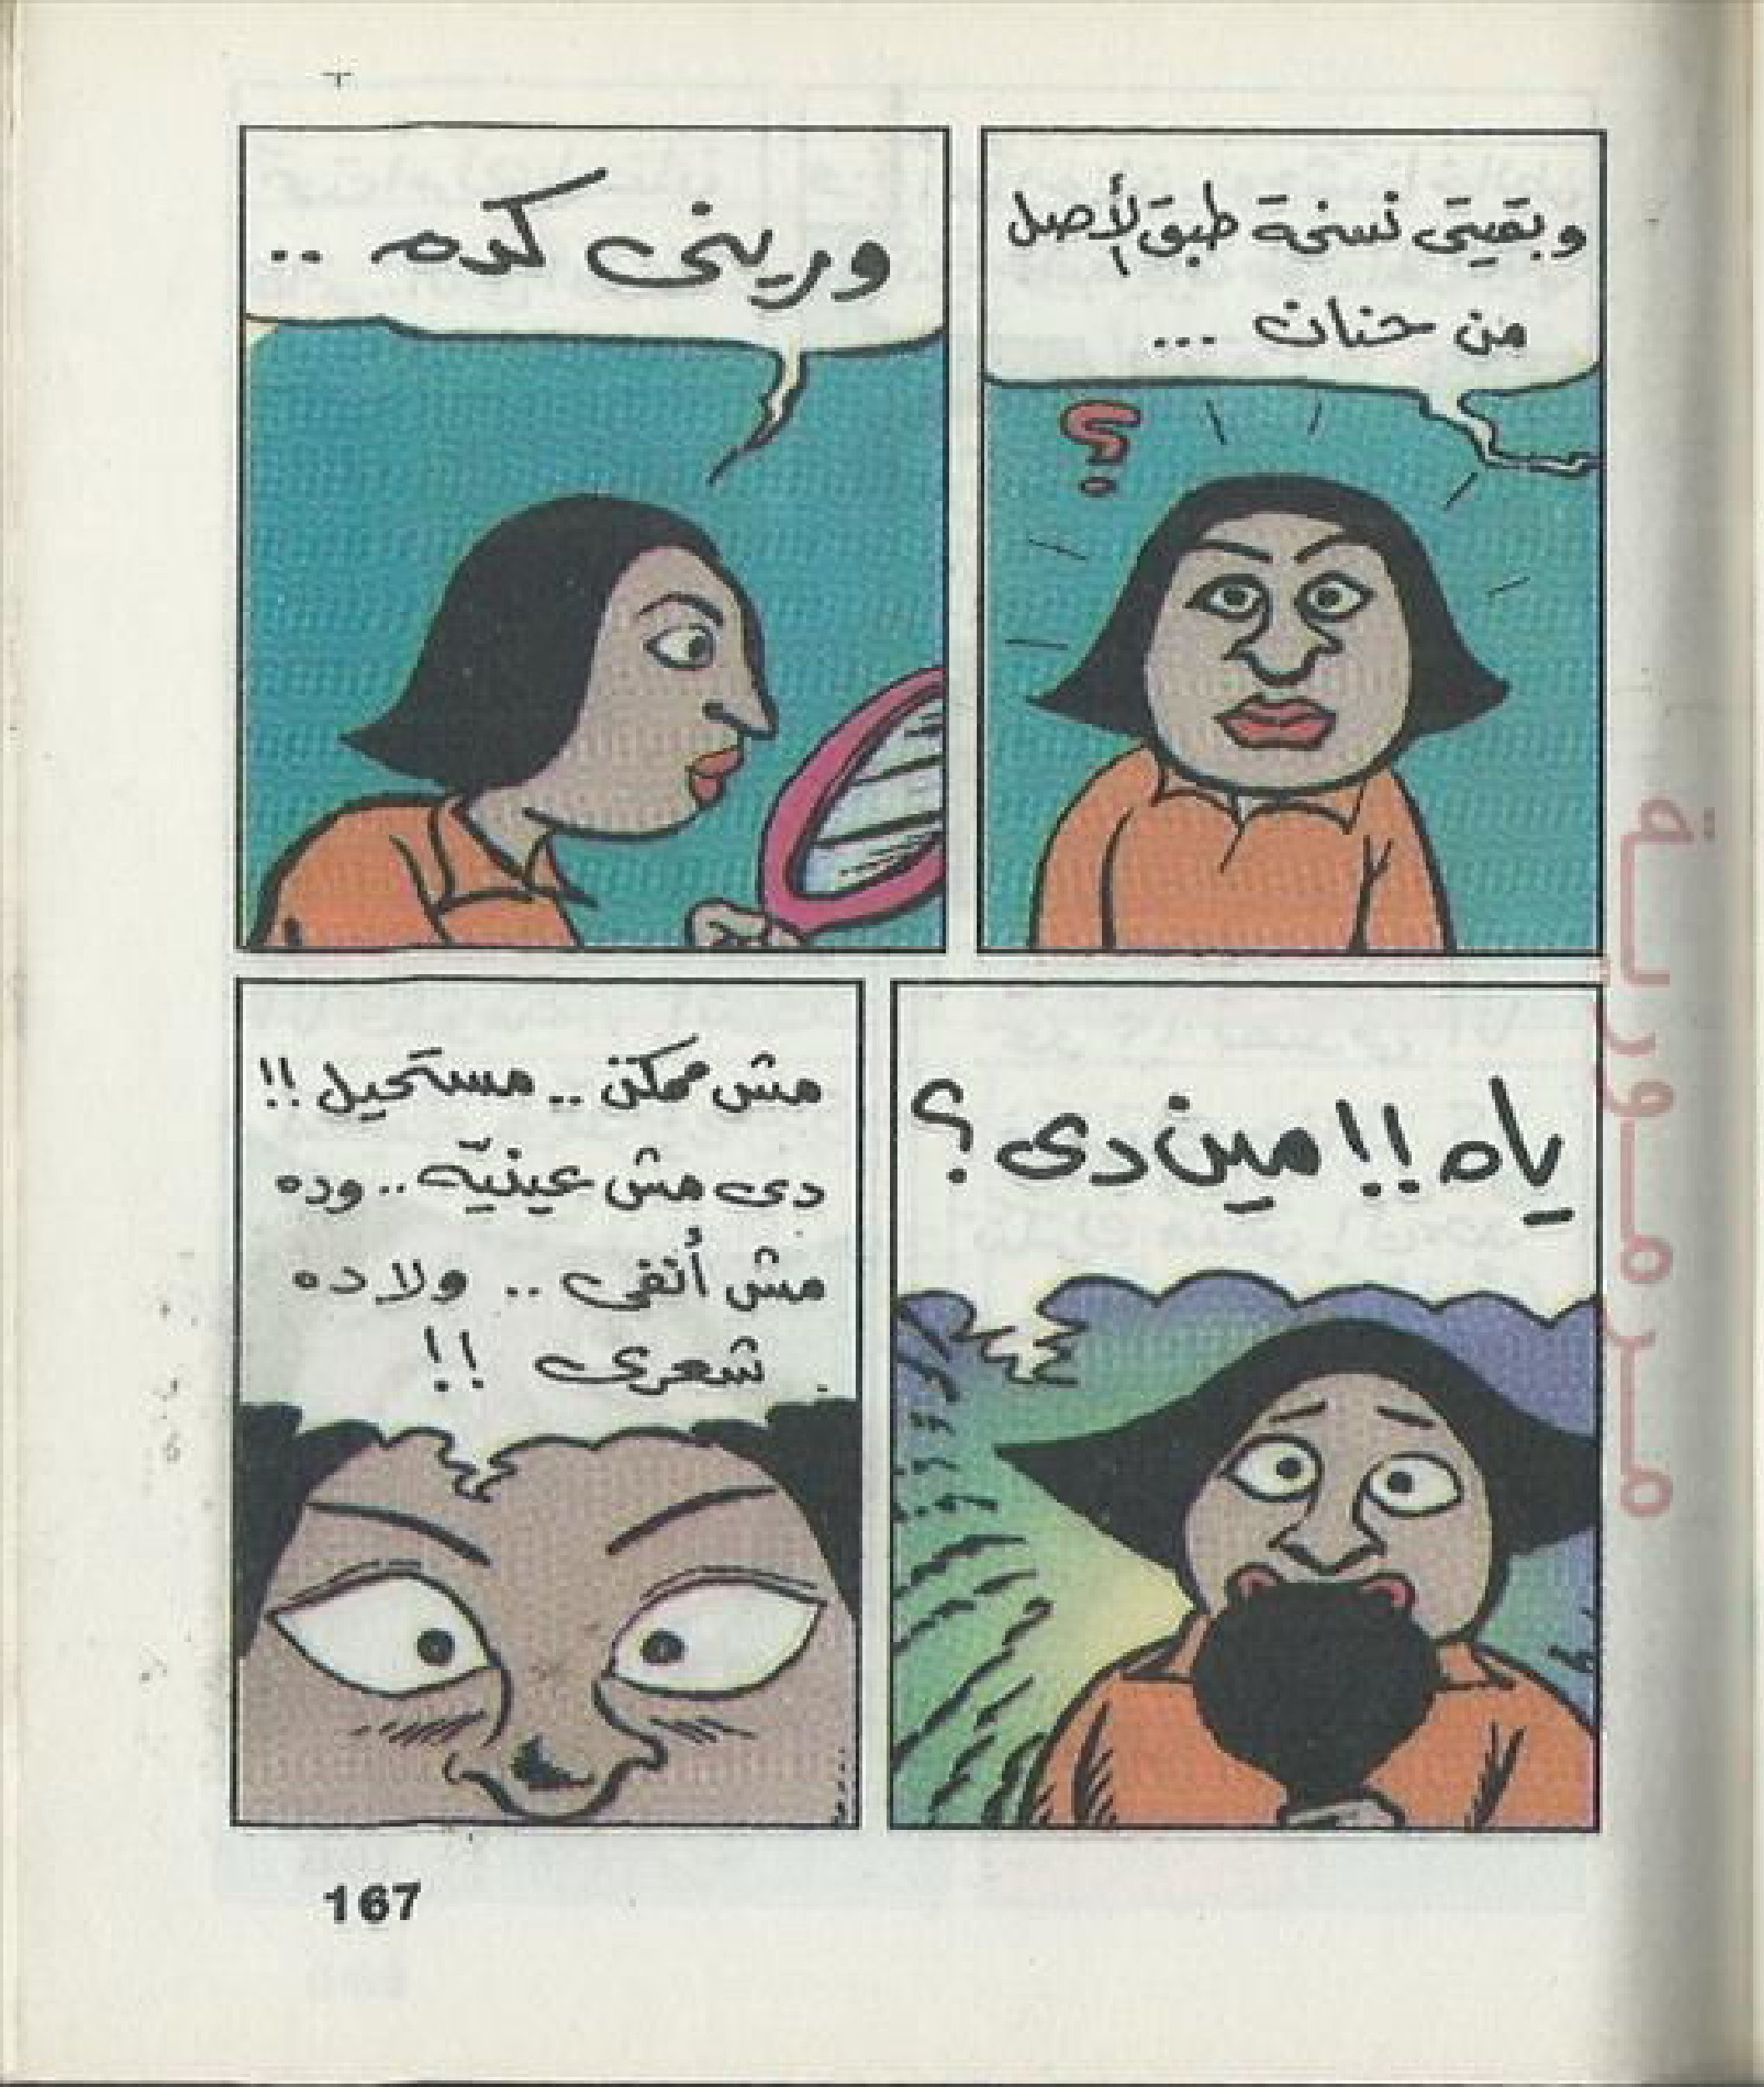 وبقيتى نسخة طبق لأصل
من حنان ...
؟
ورينى كده ..
ياه !! مين دى ؟
مش ممكن .. مستحيل !!
دى مش عينيّه .. وده
مش أنفى .. ولا ده
شعرى !!
167
مرمورية